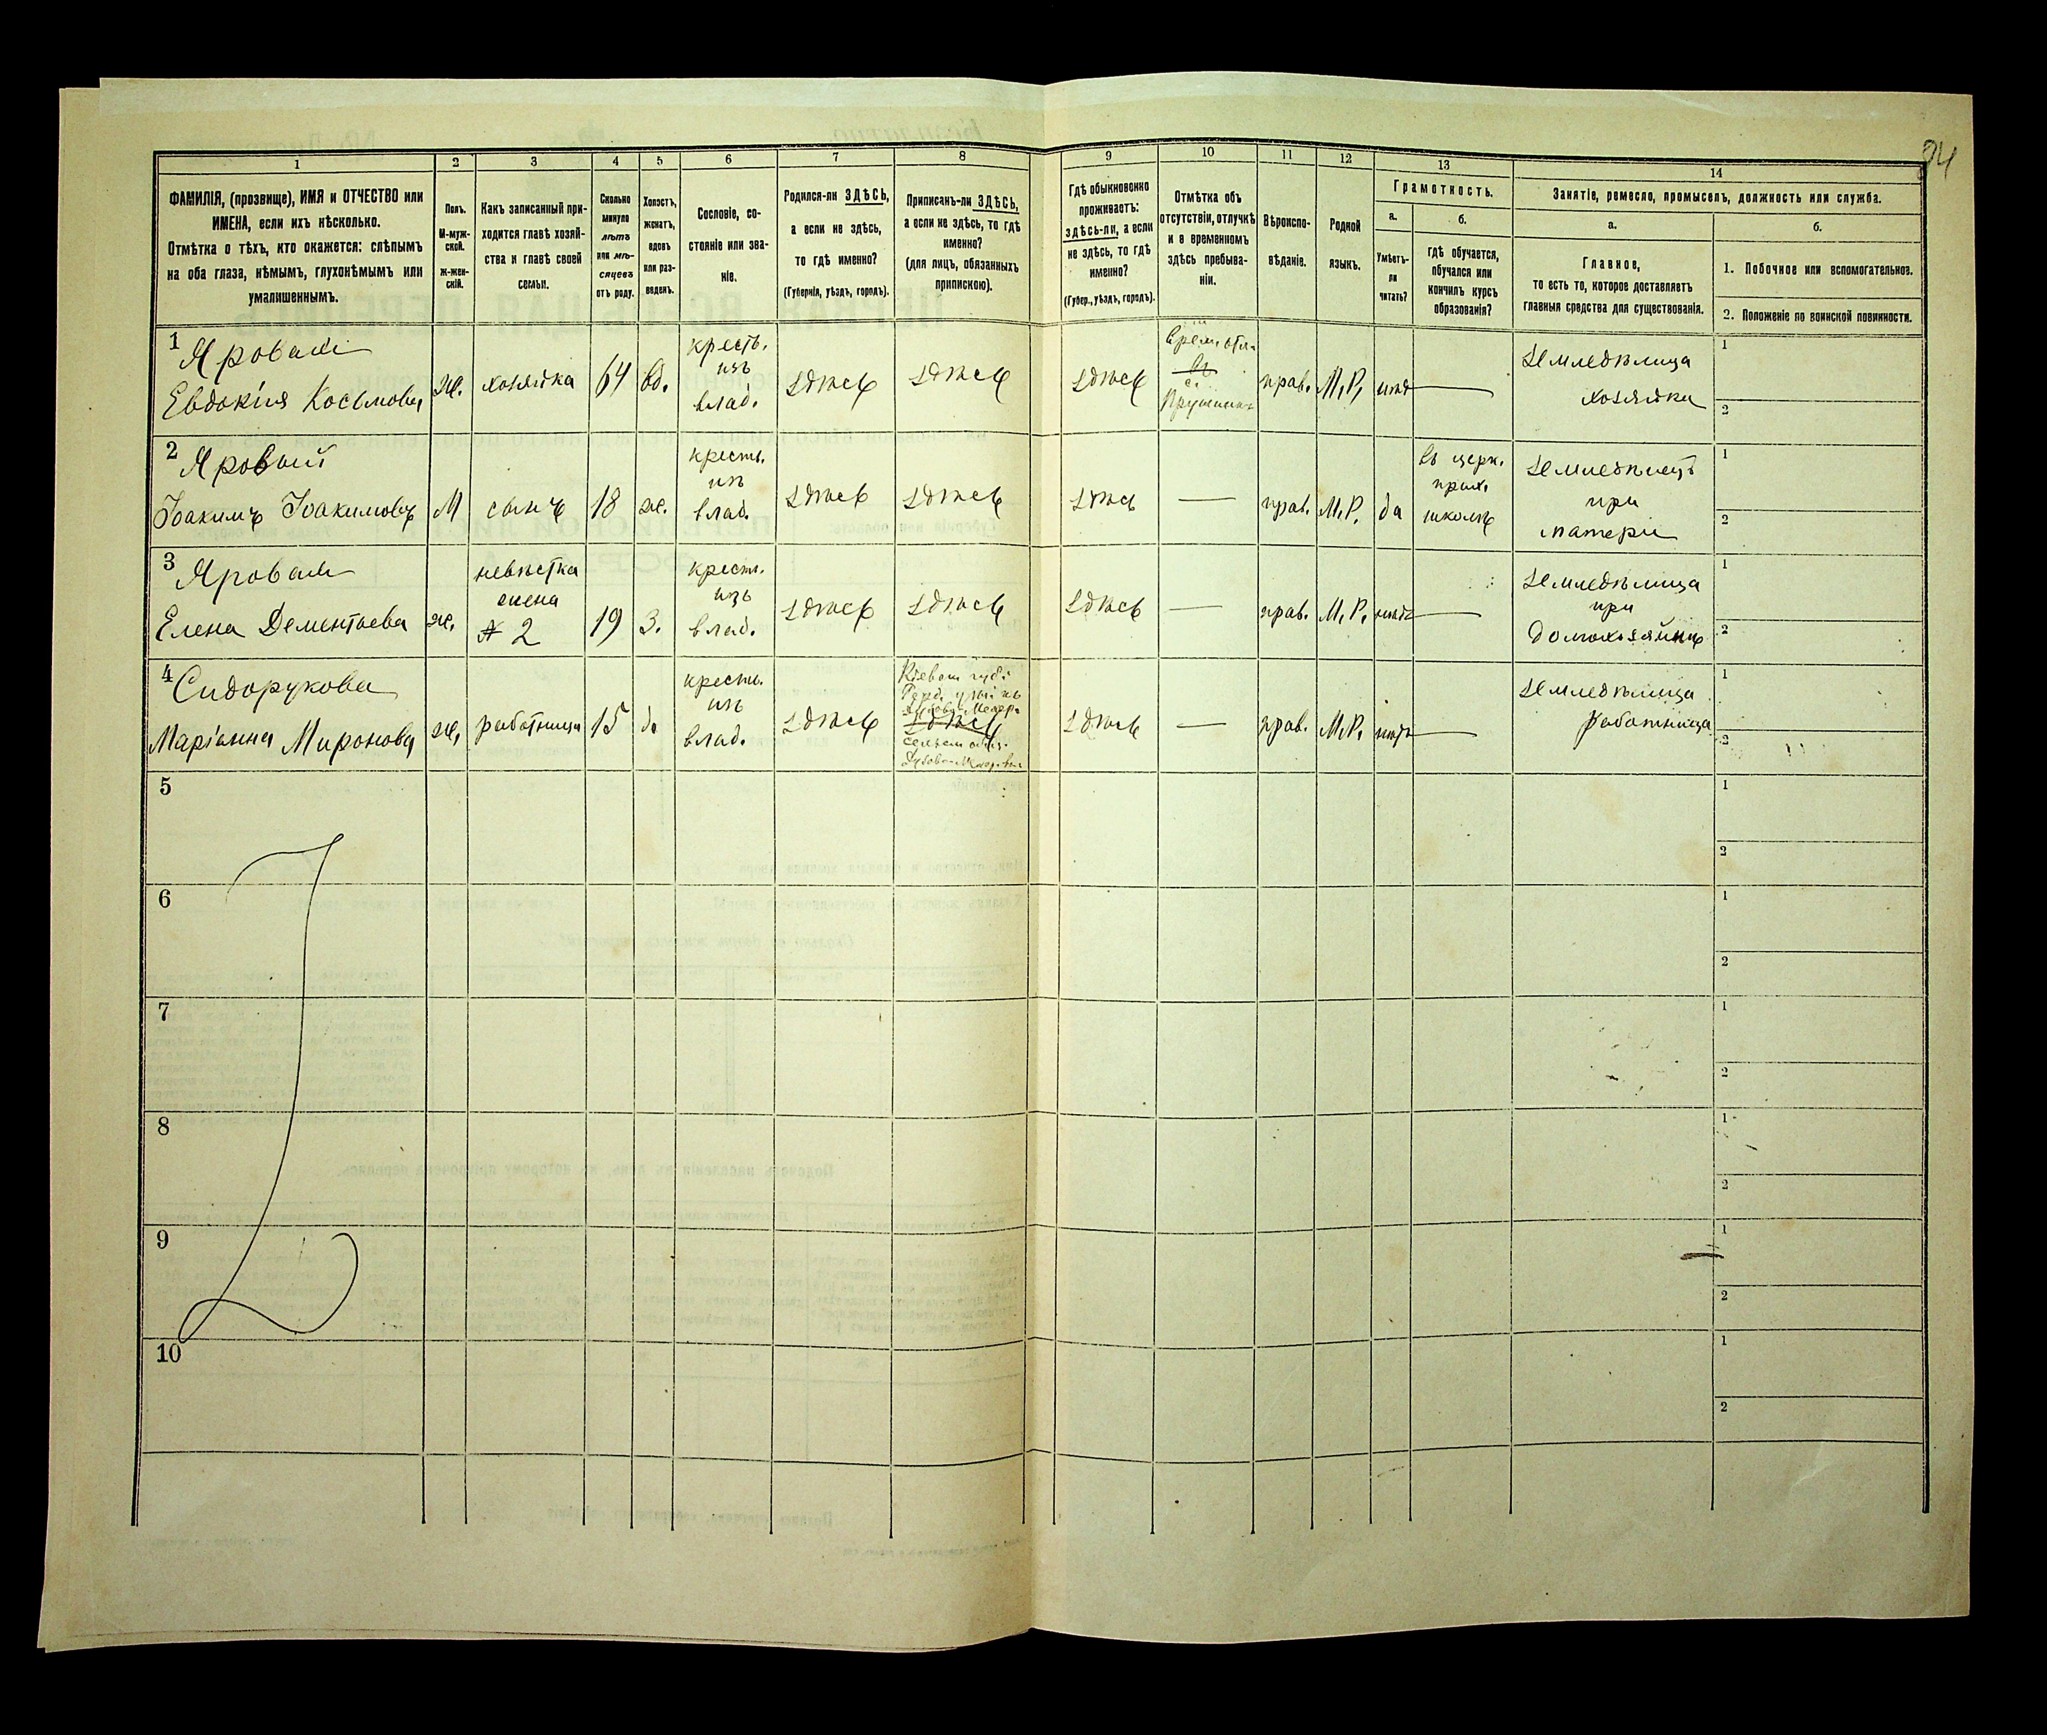 94
1 2 3 4 5 6 7 8 9 10 11 12 13 14
ФАМИЛІЯ, (прозвище), ИМЯ и ОТЧЕСТВО или
ИМЕНА, если ихъ нѣсколько.
Отмѣтка о тѣхъ, кто окажется: слѣпымъ
на оба глаза, нѣмымъ, глухонѣмымъ или
умалишеннымъ.
Полъ.
М-муж-
ской.
ж-жен-
скій.
Какъ записанный при-
ходится главѣ хозяй-
ства и главѣ своей
семьи.
Сколько
минуло
лѣтъ
или мѣ-
сяцевъ
отъ роду.
Холостъ,
женатъ,
вдовъ
или раз-
веденъ.
Сословіе, со-
стояніе или зва-
ніе.
Родился-ли ЗДѢСЬ,
а если не здѣсь,
то гдѣ именно?
(Губернія, уѣздъ, городъ).
Приписанъ-ли ЗДѢСЬ,
а если не здѣсь, то гдѣ
именно?
(для лицъ, обязанныхъ
припискою).
Гдѣ обыкновенно
проживаетъ:
здѣсь-ли, а если
не здѣсь, то гдѣ
именно?
(Губер., уѣздъ, городъ).
Отмѣтка объ
отсутствіи, отлучкѣ
и о временномъ
здѣсь пребыва-
ніи.
Вѣроиспо-
вѣданіе.
Родной
языкъ.
Грамотность.
а.
Умѣетъ-
ли
читать?
б.
гдѣ обучается,
обучался или
кончилъ курсъ
образованія?
Занятіе, ремесло, промыселъ, должность или служба.
а.
Главное,
то есть то, которое доставляетъ
главныя средства для существованія.
б.
1. Побочное или вспомогательное.
2. Положеніе по воинской повинности.
1 Яровая
Евдокія Косьмова
ж.
хозяйка
64
вд.
кресть.
изъ
влад.
здѣсь
здѣсь
здѣсь
въ
с.
прав.
М.Р.
нѣтъ
Земледѣлица
хозяйка
1
2
2 Яровый
Іоакимъ Іоакимовъ
М
сынъ
18
ж.
кресть.
изъ
влад.
здѣсь
здѣсь
здѣсь
прав.
М.Р.
да
въ церк.
прих.
школѣ
Земледѣлецъ
при
матери
1
2
3 Яровая
Елена Дементьева
ж.
невѣстка
жена
№ 2
19
З.
кресть.
изъ
влад.
здѣсь
здѣсь
здѣсь
прав.
М.Р.
нѣтъ
Земледѣлица
при
домохозяйкѣ
1
2
4 Сидорукова
Маріанна Миронова
ж.
работница
15
д.
кресть.
изъ
влад.
здѣсь
здѣсь
здѣсь
прав.
М.Р.
нѣтъ
Земледѣлица
работница
1
2
5
1
2
6
1
2
7
1
2
8
1
2
9
1
2
10
1
2